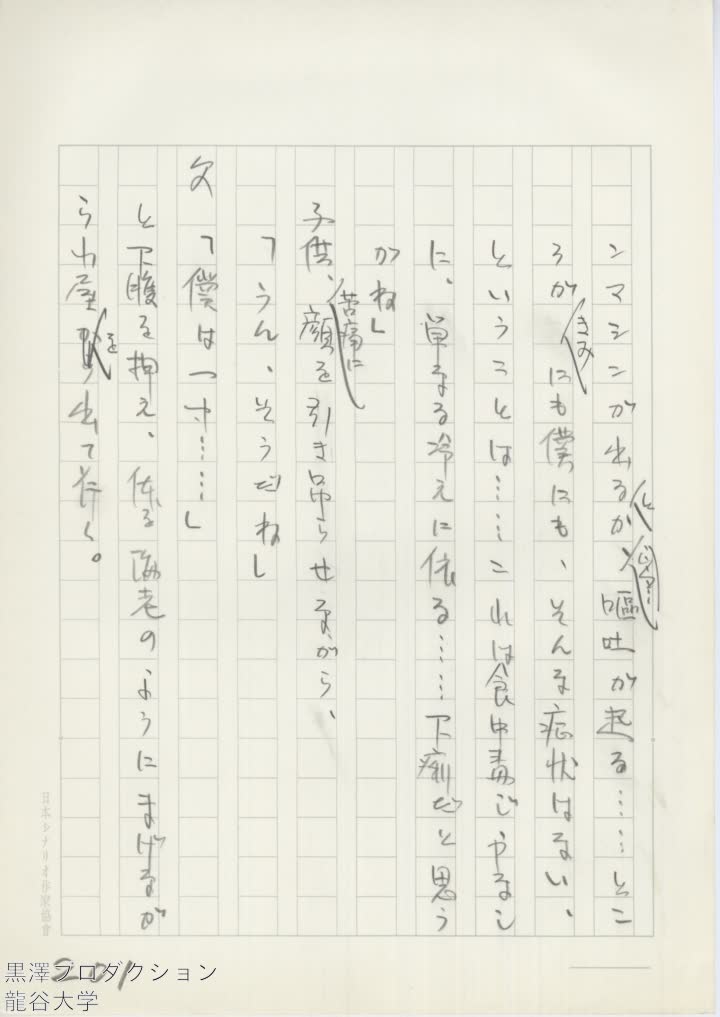 ンマシンが出るか、嘔吐が起る……とこ
ろが
きみ
にも僕にも、そんな症状はない、
ということは……これは食中毒じゃなし
に、単なる冷えに依る……下痢だと思う
がね」
子供、
苦痛に
顔を引き吊らせながら、
「うん、そうだね」
父「僕は一寸……」
と下腹を押え、体を海老のようにまげなが
ら、部屋
を
出て行く。
日本シナリオ作家協會
201
黒澤プロダクション
龍谷大学